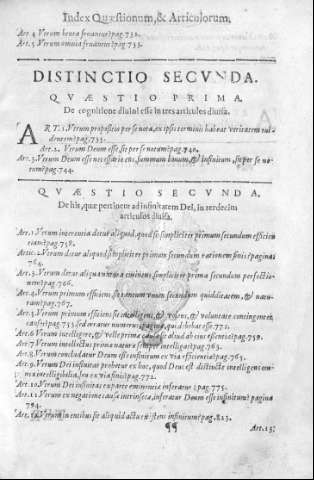 Index Quæstionum, & Articulorum.
Art. 4 Verum beata pag. 732.
Art. 5 Verum omnia pag. 733.
DISTINCTIO SECVNDA.
QVÆSTIO PRIMA,
De cognitione diuisa esse in tres articulos diuisa.
ART. 1. Verum propositio per se nota, ex ipsis terminis habeat veritatem euidentem? pag. 735.
Art. 2. Verum Deum esse, sit per se notum? pag. 740.
Art. 3. Verum Deum esse necessario ens, summum bonum, & infinitum, sit per se notum? pag. 744.
QVÆSTIO SECVNDA,
De his, quæ pertinent ad infinitatem Dei, in tredecim
articulos diuisa.
Art. 1. Verum in erentia detur aliquod, quod sit simpliciter primum secundum efficien
tiam? pag. 758.
Artic. 2. Verum detur aliquod simpliciter primum secundum rationem finis? pagina
764.
Art. 3. Verum detur aliqua natura eminens simpliciter prima secundum perfectio-
nem? pag. 766.
Art. 4. Verum primum efficiens, sit vnum secundum quidditatem, & natu-
ram? pag. 767.
Art. 5. Verum primum efficiens sit intelligens, & volens, & voluntate contingenter
causet? pag. 755 sed erratus numerus pagina, qui debuit esse 771.
Art. 6. Verum intelligere, & velle primæ causæ sit aliud ab eius essentia? pag. 759.
Art. 7. Verum intellectus prima natura semper intelligat? pag. 763.
Art. 8. Verum concludatur Deum esse infinitum ex via efficientiæ? pag. 763.
Art. 9. Verum Dei infinitas probetur ex hoc, quod Deus est distincte intelligens om-
nia intelligibilia, seu ex via finis? pag. 772.
Art. 10. Verum Dei infinitas ex parte eminentiæ inferatur? pag. 775.
Art. 11. Verum ex negatione causæ intrinsecæ, inferatur Deum esse infinitum? pagina
794.
Art. 12. Verum in entibus sit aliquid actu existens infinitum? pag. 823.
¶¶ Art. 13.